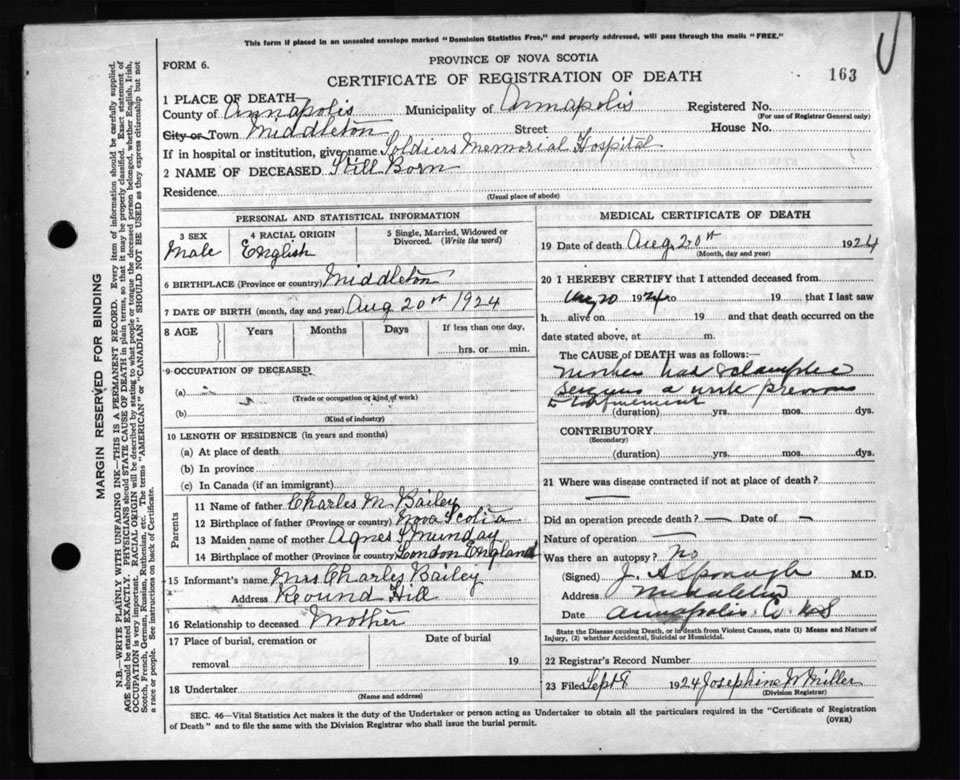 This form if placed in an unsealed envelope marked "Dominion Statistics Free," and properly addressed, will pass through the mails "FREE."
FORM 6.
PROVINCE OF NOVA SCOTIA
CERTIFICATE OF REGISTRATION OF DEATH
163
1 PLACE OF DEATH
County of Annapolis Municipality of Annapolis Registered No.
(For use of Registrar General only)
City or Town Middleton Street House No.
If in hospital or institution, give name Soldiers Memorial Hospital
2 NAME OF DECEASED Still Born
Residence
(Usual place of abode)
PERSONAL AND STATISTICAL INFORMATION
3 SEX 4 RACIAL ORIGIN 5 Single, Married, Widowed or
Divorced. (Write the word)
Male English
6 BIRTHPLACE (Province or country) Middleton
7 DATE OF BIRTH (month, day and year) Aug 20st 1924
8 AGE Years Months Days If less than one day,
hrs. or min.
9 OCCUPATION OF DECEASED
(a)
(Trade or occupation or kind of work)
(b)
(Kind of industry)
10 LENGTH OF RESIDENCE (in years and months)
(a) At place of death
(b) In province
(c) In Canada (if an immigrant)
Parents
11 Name of father Charles M. Bailey
12 Birthplace of father (Province or country) Nova Scotia
13 Maiden name of mother Agnes S Munday
14 Birthplace of mother (Province or country) London England
15 Informant's name Mrs Charles Bailey
Address Round Hill
16 Relationship to deceased Mother
17 Place of burial, cremation or Date of burial
removal 19
18 Undertaker
(Name and address)
MEDICAL CERTIFICATE OF DEATH
19 Date of death Aug 20st 1924
(Month, day and year)
20 I HEREBY CERTIFY that I attended deceased from
Aug 20 1924 to 19 that I last saw
h alive on 19 and that death occurred on the
date stated above, at m.
The CAUSE OF DEATH was as follows:—
Mother had
a week previous
to confinement
(duration) yrs. mos. dys.
CONTRIBUTORY
(Secondary)
(duration) yrs. mos. dys.
21 Where was disease contracted if not at place of death?
—
Did an operation precede death? — Date of —
Nature of operation —
Was there an autopsy? No
(Signed) J. A Sponagle M.D.
Address Middleton
Date Annapolis Co NS
State the Disease causing Death, or in death from Violent Causes, state (1) Means and Nature of
Injury, (2) whether Accidental, Suicidal or Homicidal.
22 Registrar's Record Number
23 Filed Sept 8 1924 Josephine W Miller
(Division Registrar)
SEC. 46—Vital Statistics Act makes it the duty of the Undertaker or person acting as Undertaker to obtain all the particulars required in the "Certificate of Registration
of Death" and to file the same with the Division Registrar who shall issue the burial permit. (OVER)
MARGIN RESERVED FOR BINDING
N.B.—WRITE PLAINLY WITH UNFADING INK—THIS IS A PERMANENT RECORD. Every item of information should be carefully supplied.
AGE should be stated EXACTLY. PHYSICIANS should STATE CAUSE OF DEATH in plain terms, so that it may be properly classified. Exact statement of
OCCUPATION is very important. RACIAL ORIGIN will be described by stating to what people or tongue the deceased person belonged, whether English, Irish,
Scotch, French, German, Russian, Ruthenian, etc. The terms "AMERICAN" or "CANADIAN" SHOULD NOT BE USED as they express citizenship but not
a race or people. See instructions on back of Certificate.